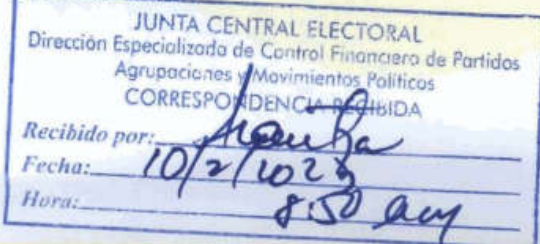 JUNTA CENTRAL ELECTORAL
Dirección Especializada de Control Financiero de Partidos
Agrupaciones y Movimientos Políticos
CORRESPONDENCIA RECIBIDA
Recibido por:
Fecha: 10/2/2023
Hora: 8:50 am